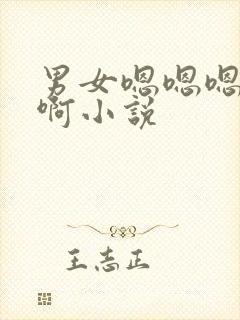 男女嗯嗯嗯
啊小说
王志正